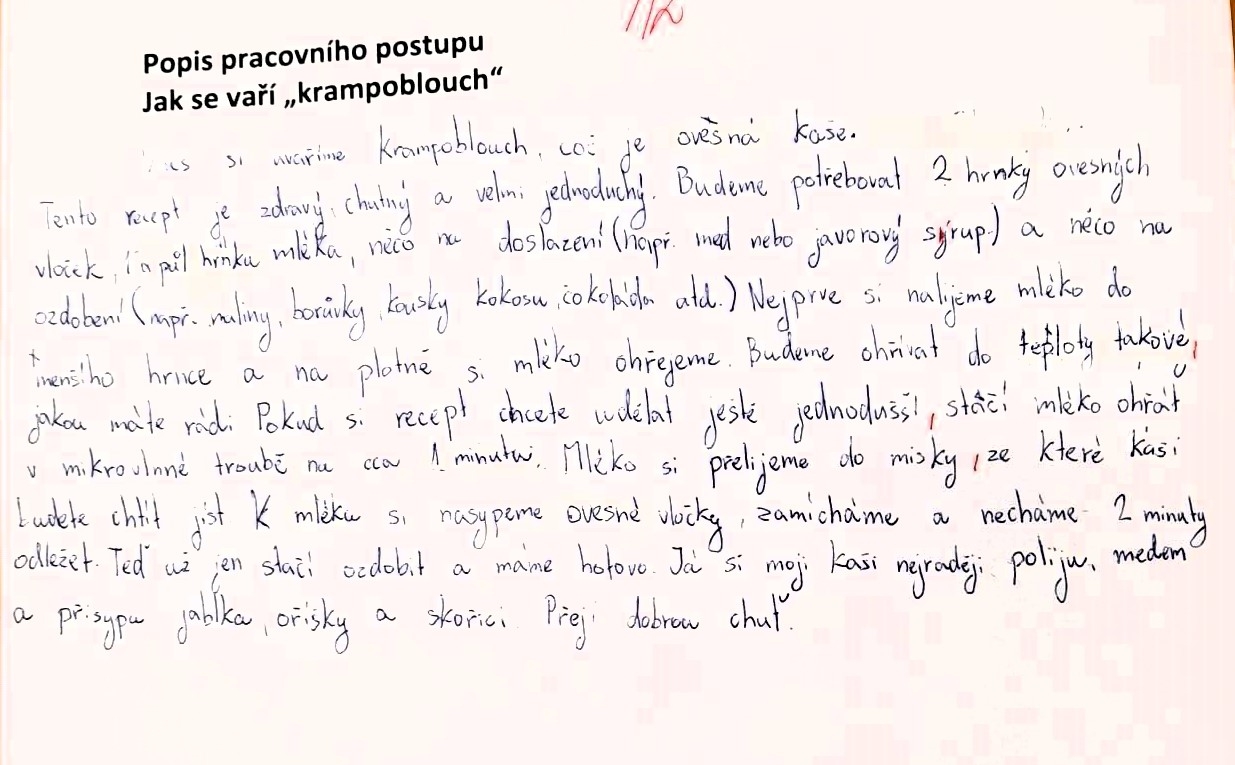 1/2
Popis pracovního postupu
Jak se vaří „krampoblouch“
si uvaříme krampoblouch, což je ověsná kaše.
Tento recept je zdravý, chutný a velmi jednoduchý. Budeme potřebovat 2 hrnky ovesných
vloček, 1 a půl hrnku mléka, něco na doslazení (např. med nebo javorový syrup) a něco na
ozdobení (např. maliny, borůvky, kousky kokosu, čokoláda atd.) Nejprve si nalijeme mléko do
menšího hrnce a na plotně si mléko ohřejeme. Budeme ohřívat do teploty takové,
jakou máte rádi. Pokud si recept chcete udělat ještě jednodušší, stačí mléko ohřát
v mikrovlnné troubě na cca 1 minutu. Mléko si přelijeme do misky, ze které kaši
budete chtít jíst. K mléku si nasypeme ovesné vločky, zamícháme a necháme 2 minuty
odležet. Teď už jen stačí ozdobit a máme hotovo. Já si moji kaši nejraději poliju medem
a přisypu jablka, oříšky a skořici. Přeji dobrou chuť.